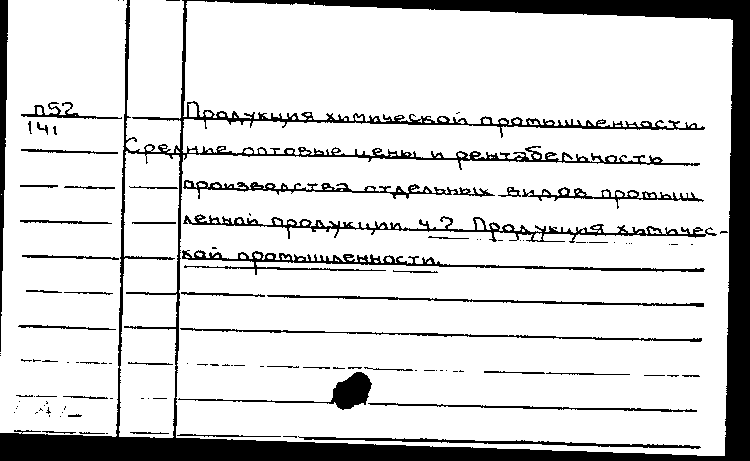 п52
141
Продукция химической промышленности
Средние оптовые цены и рентабельность
производства отдельных видов промыш
ленной продукции. ч.7. Продукция химичес-
кой промышленности.